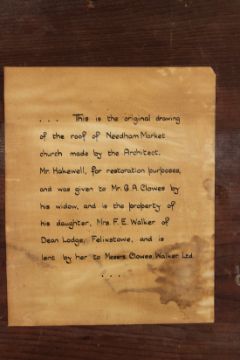 . . . This is the original drawing
of the roof of Needham Market
church made by the Architect,
Mr. Hakewell, for restoration purposes,
and was given to Mr. G. A. Clowes by
his widow, and is the property of
his daughter, Mrs. F. E. Walker of
Dean Lodge, Felixstowe, and is
lent by her to Messrs Clowes Walker Ltd.
. . .